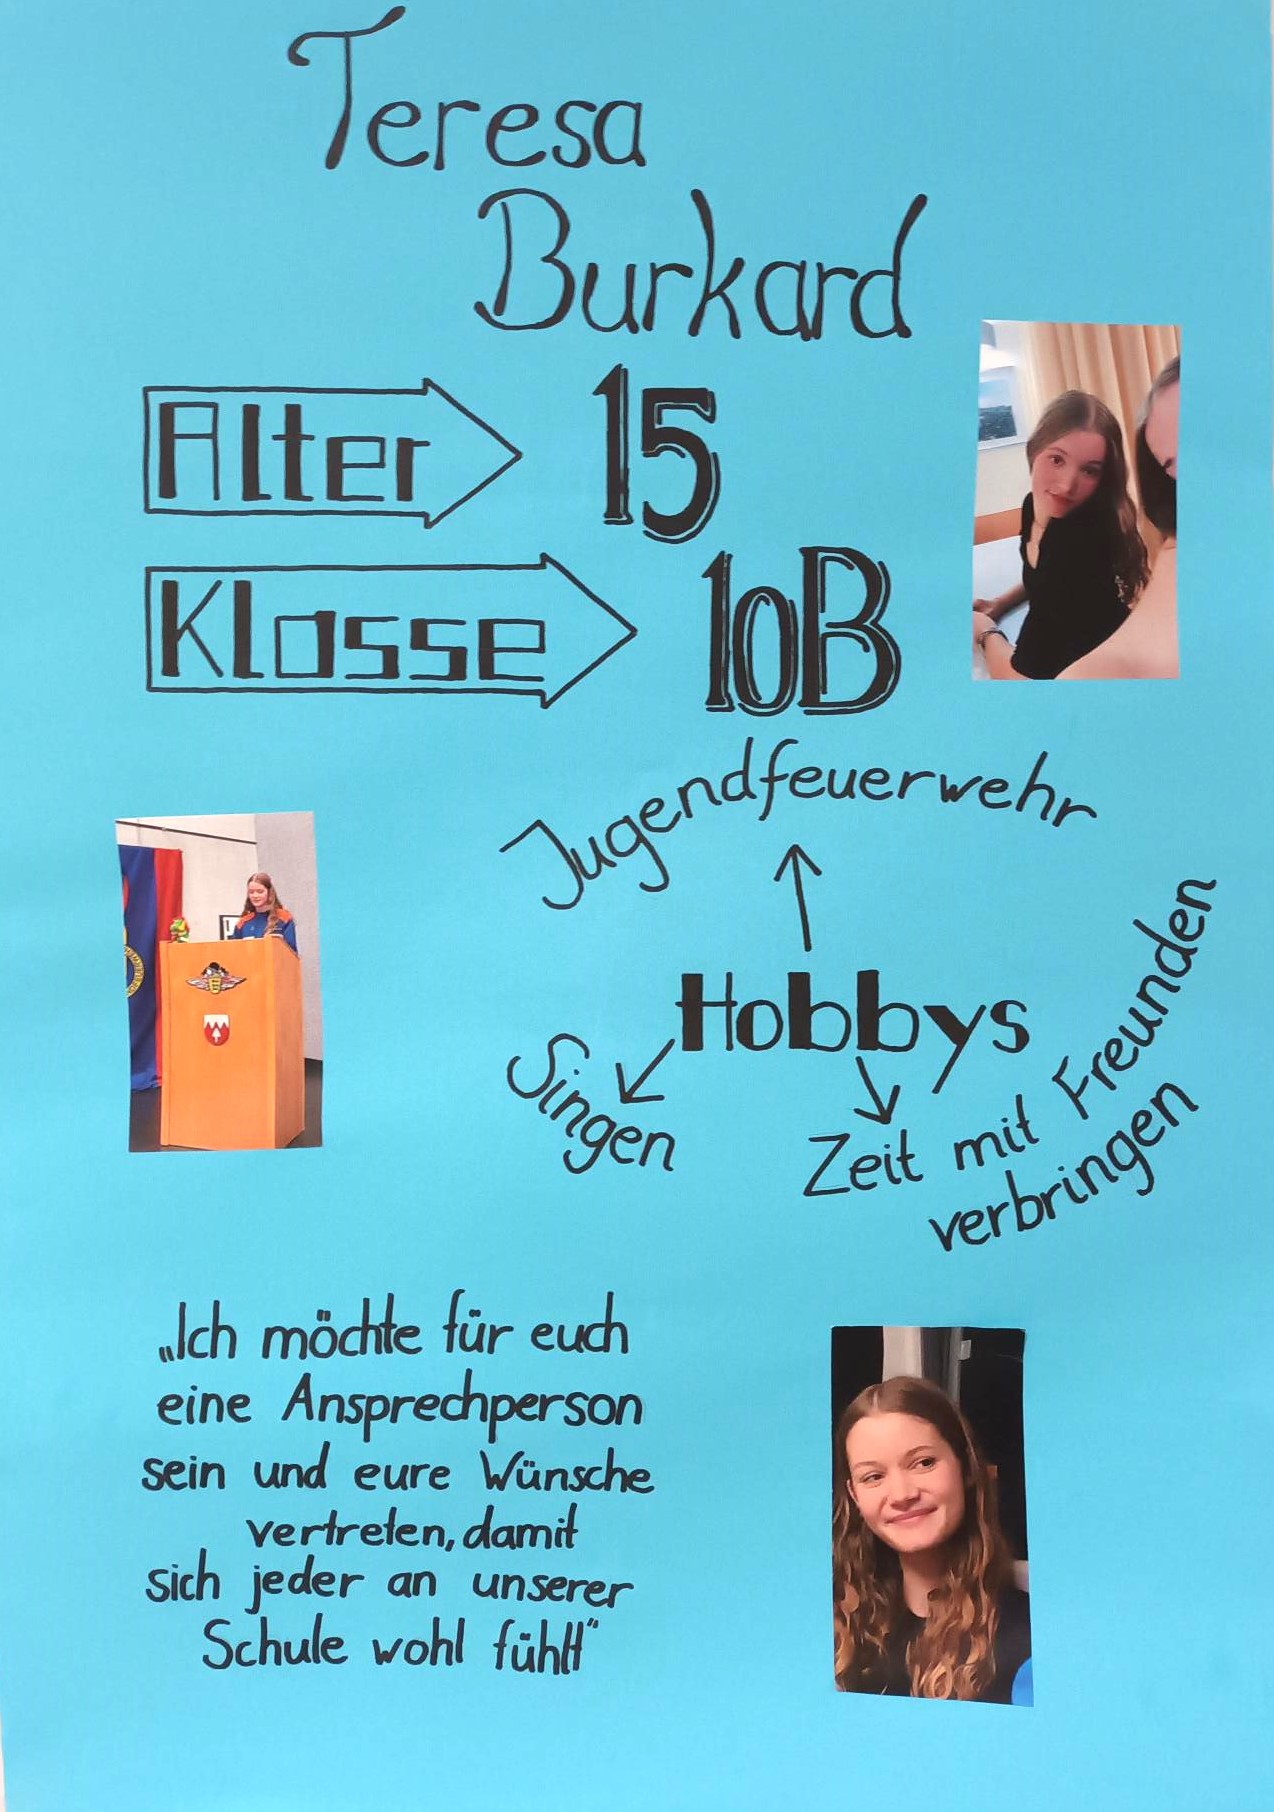 Teresa
Burkard
Alter 15
Klasse 10B
Jugendfeuerwehr
Hobbys
Singen
Zeit mit Freunden
verbringen
„Ich möchte für euch
eine Ansprechperson
sein und eure Wünsche
vertreten, damit
sich jeder an unserer
Schule wohl fühlt“